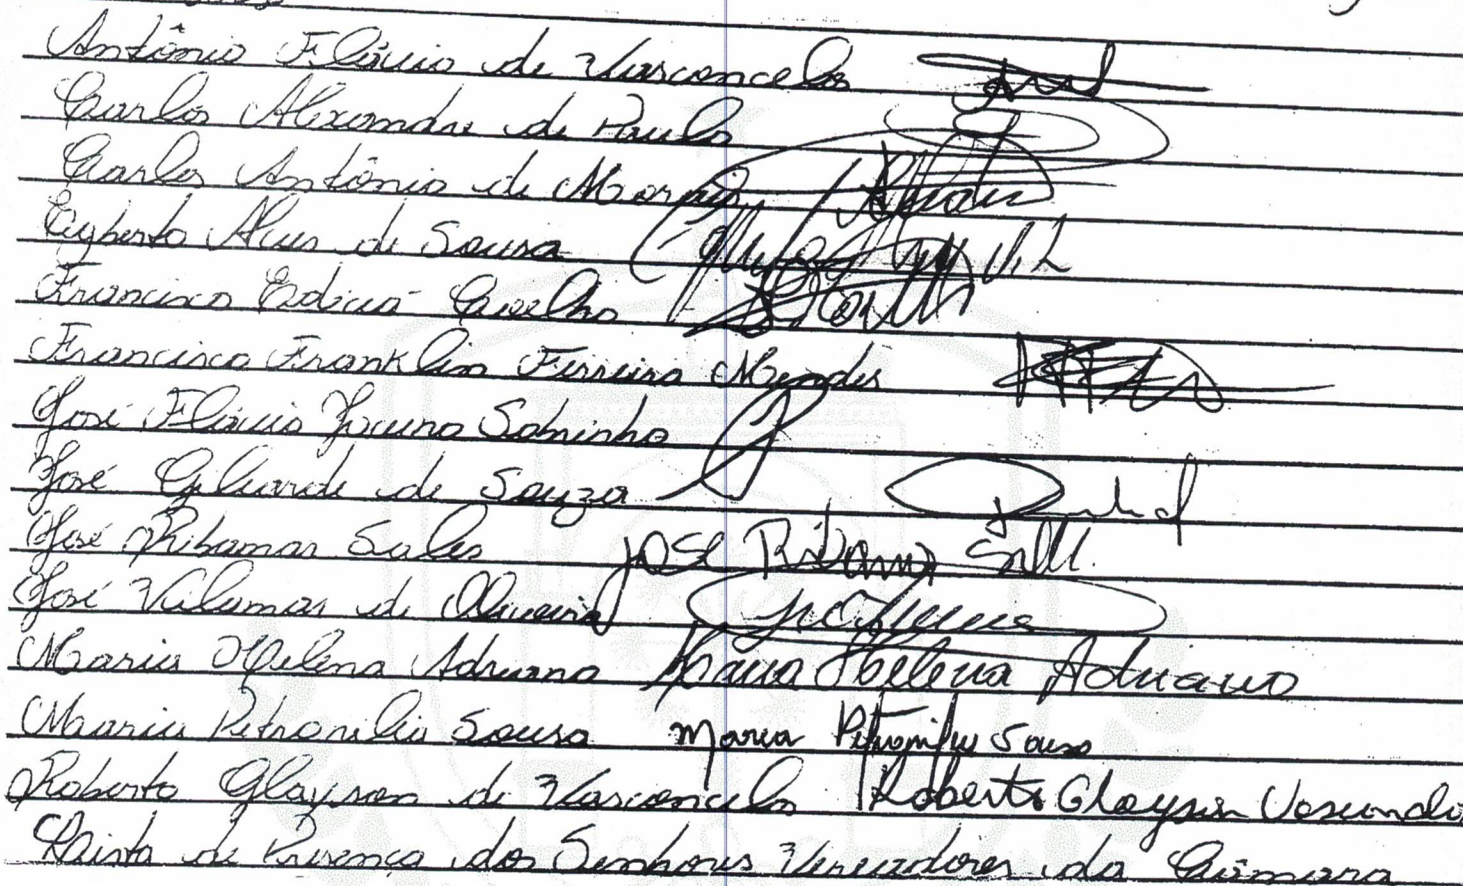 Antônio Flávio de Vasconcelos
Carlos Alexandre de Paulo
Carlos Antônio de Morais
Egberto Alves de Sousa
Francisco Edicá Coelho
Francisco Franklin Ferreira Mendes
José Flávio Jucuna Sobrinho
José Giliarde de Souza
José Ribamar Sales José Ribamar Sales
José Valemar de Oliveira
Maria Helena Adriano Maria Helena Adriano
Maria Petronilia Sousa Maria Petronilia Sousa
Roberto Glayson de Vasconcelos Roberto Glayson Vasconcelos
Lista de Presença dos Senhores Vereadores da Câmara